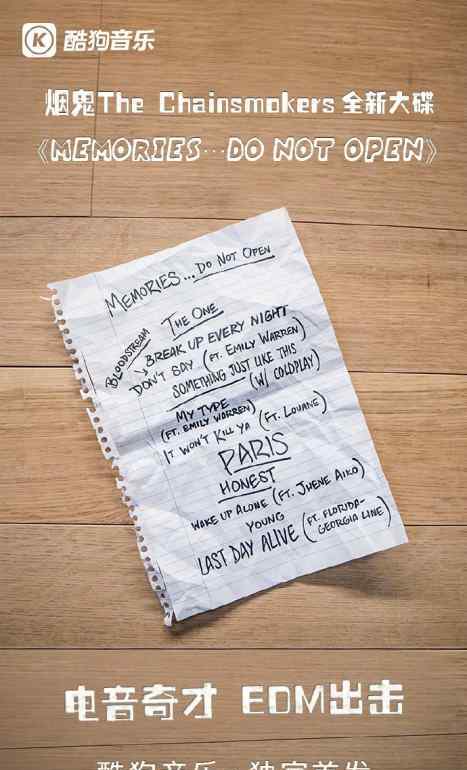 酷狗音乐
烟鬼The Chainsmokers 全新大碟
《MEMORIES...DO NOT OPEN》
MEMORIES... DO NOT OPEN
THE ONE
BLOODSTREAM
BREAK UP EVERY NIGHT
DON'T SAY (FT. EMILY WARREN)
SOMETHING JUST LIKE THIS
(W/ COLDPLAY)
MY TYPE
(FT. EMILY WARREN)
IT WON'T KILL YA (FT. LOUANE)
PARIS
HONEST
WAKE UP ALONE (FT. JHENE AIKO)
YOUNG
LAST DAY ALIVE (FT. FLORIDA-
GEORGIA LINE)
电音奇才 EDM出击
酷狗音乐 独家首发